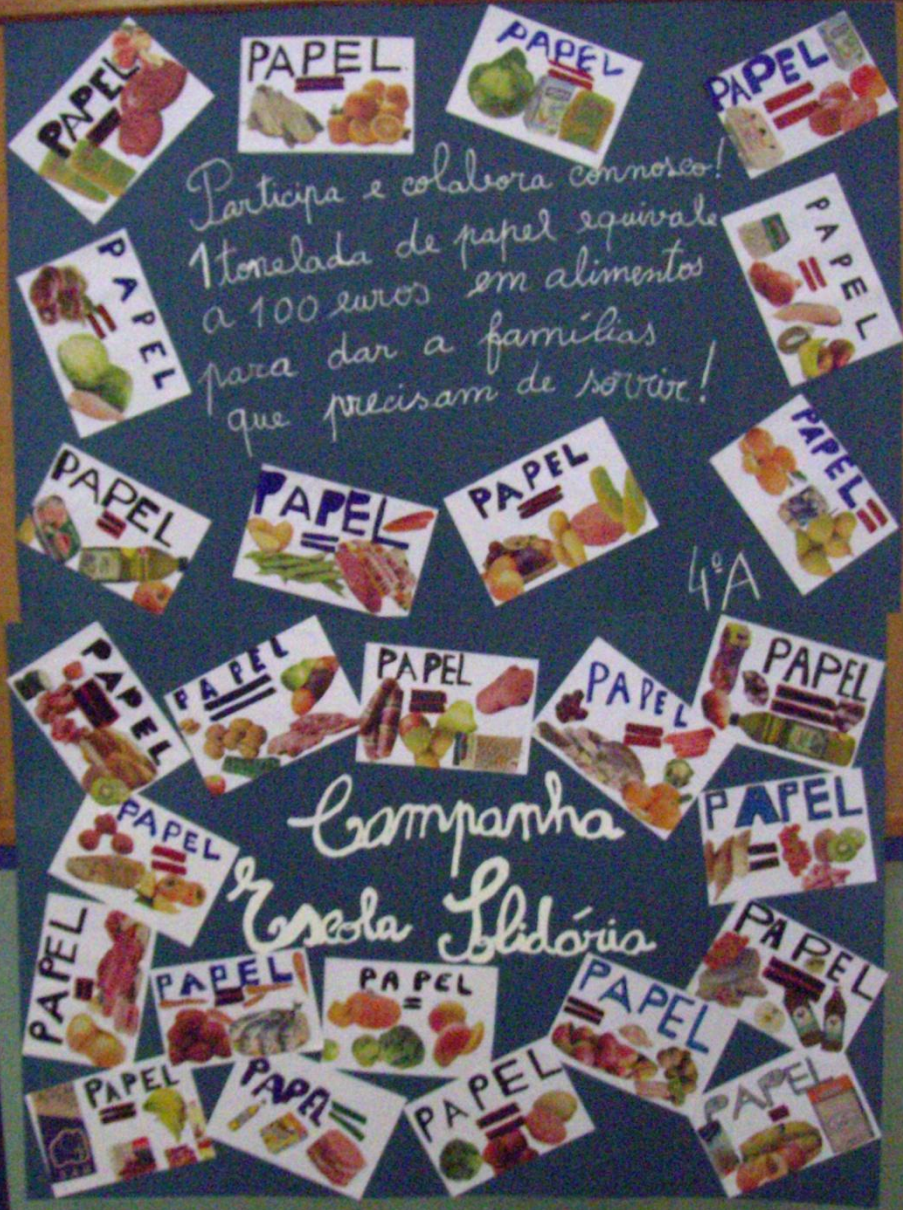 PAPEL =
PAPEL =
PAPEL =
PAPEL =
Participa e colabora connosco!
1 tonelada de papel equivale
a 100 euros em alimentos
para dar a famílias
que precisam de sorrir!
PAPEL =
PAPEL =
PAPEL =
PAPEL =
PAPEL =
PAPEL =
4º A
PAPEL =
PAPEL =
PAPEL =
PAPEL =
PAPEL =
Campanha
Escola Solidária
PAPEL =
PAPEL =
PAPEL =
PAPEL =
PAPEL =
PAPEL =
PAPEL =
PAPEL =
PAPEL =
PAPEL =
PAPEL =